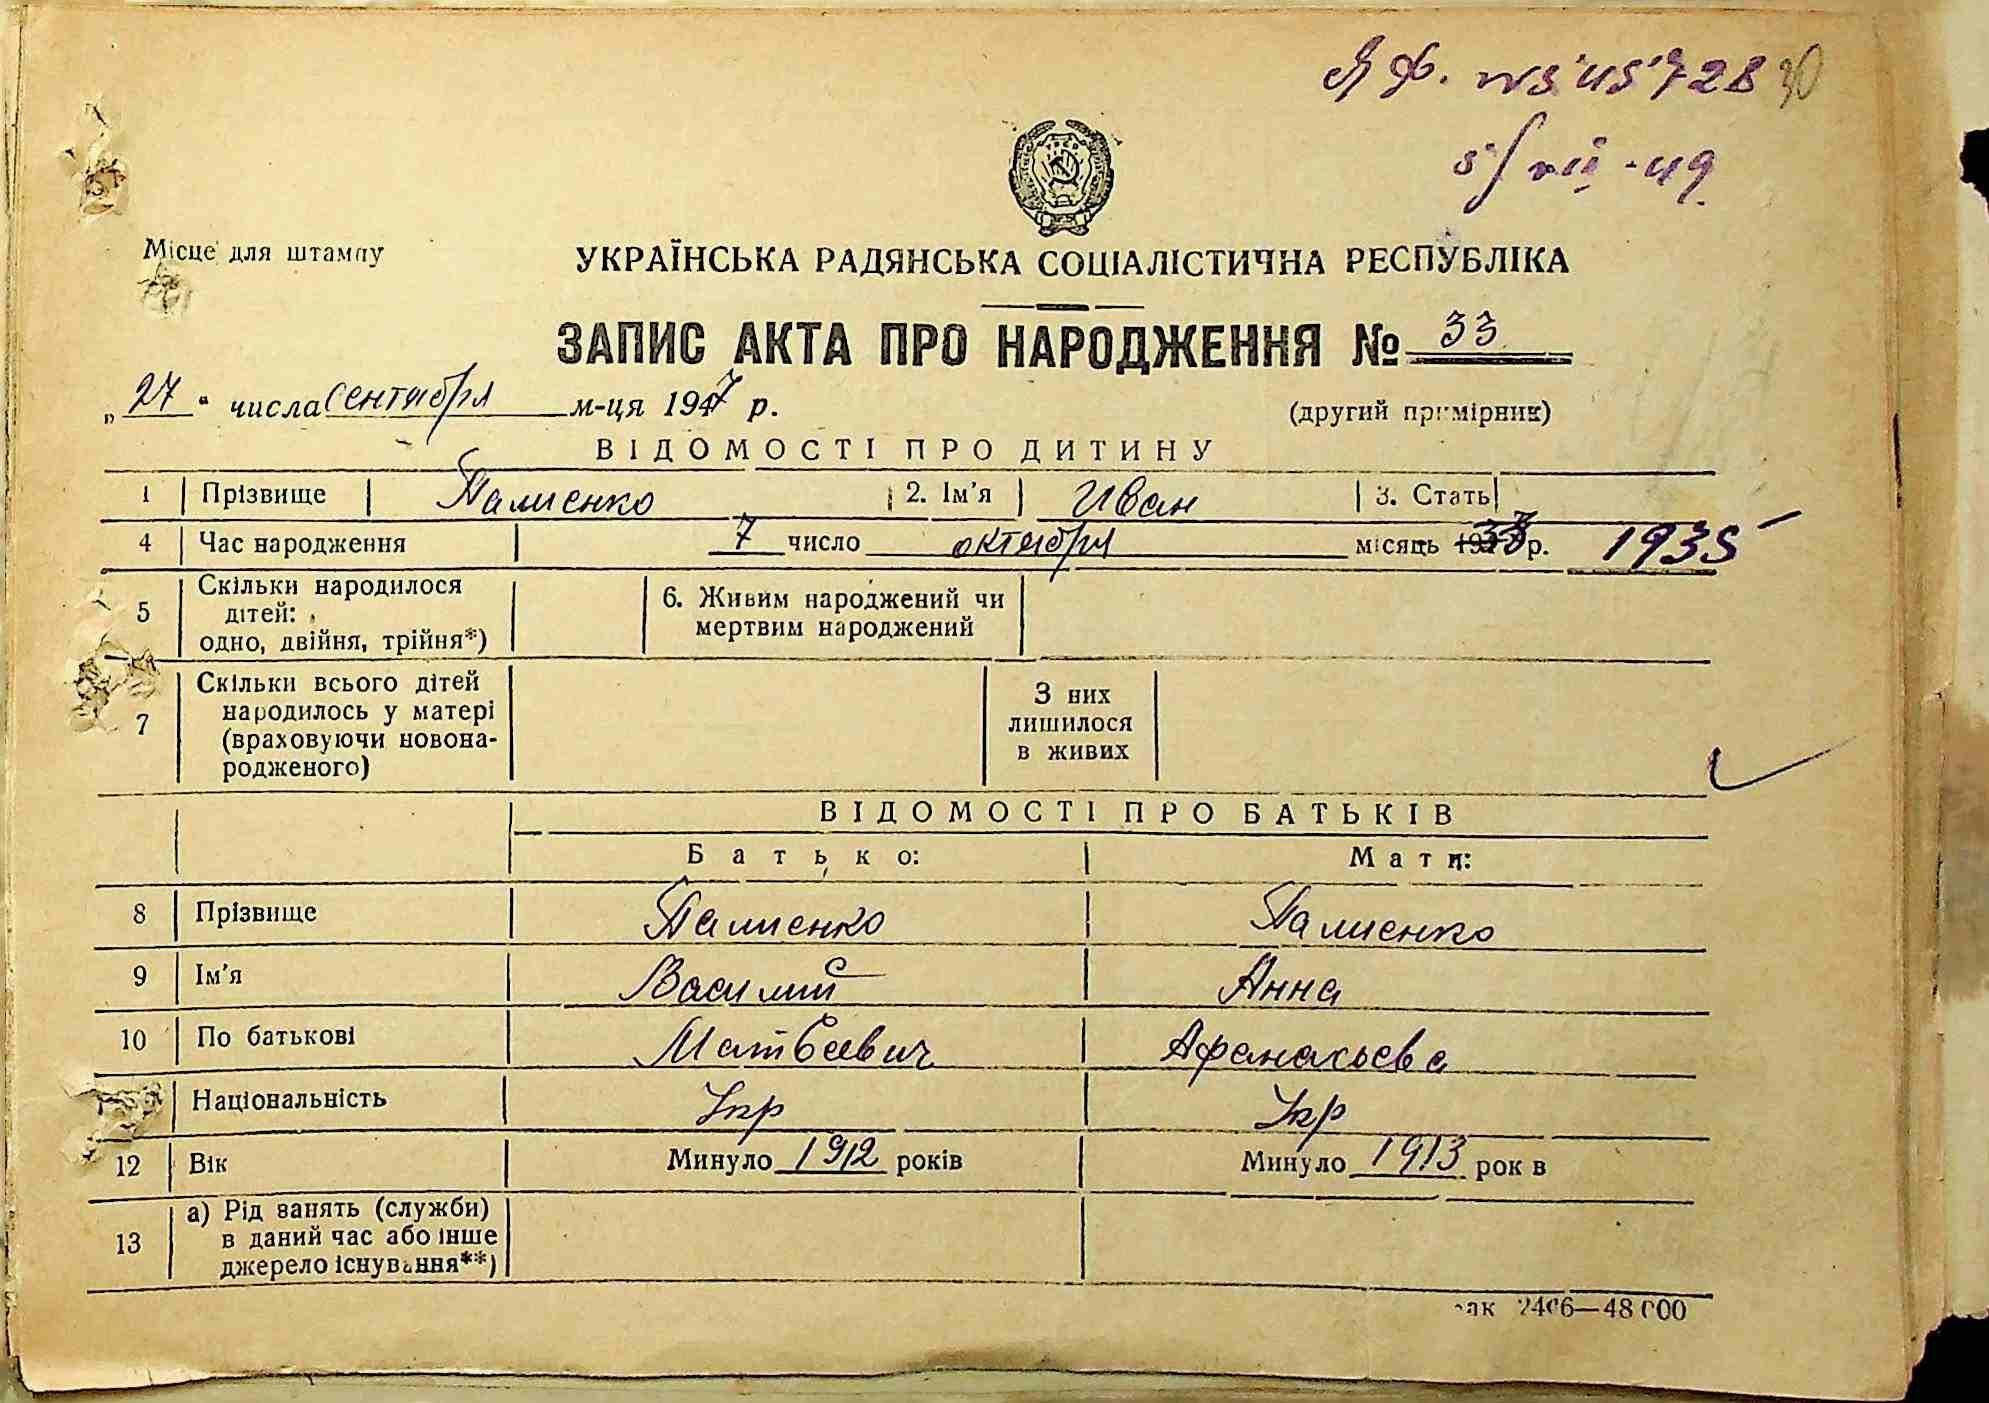 ЯФ. № 457728 30
5/VII-49.
Місце для штампу
УКРАЇНСЬКА РАДЯНСЬКА СОЦІАЛІСТИЧНА РЕСПУБЛІКА
ЗАПИС АКТА ПРО НАРОДЖЕННЯ № 33
„27“ числа сентября м-ця 1947 р.
(другий примірник)
ВІДОМОСТІ ПРО ДИТИНУ
1 Прізвище Палиенко 2. Ім'я Иван 3. Стать
4 Час народження 7 число октября місяць р. 1935
5 Скільки народилося дітей: одно, двійня, трійня*) 6. Живим народжений чи мертвим народжений
7 Скільки всього дітей народилось у матері (враховуючи новонародженого) З них лишилося в живих
ВІДОМОСТІ ПРО БАТЬКІВ
Батько: Мати:
8 Прізвище Палиенко Палиенко
9 Ім'я Василий Анна
10 По батькові Матвеевич Афанасьевa
Національність Укр Укр
12 Вік Минуло 1912 років Минуло 1913 рок в
13 а) Рід занять (служби) в даний час або інше джерело існування**)
зак 2406—48 000